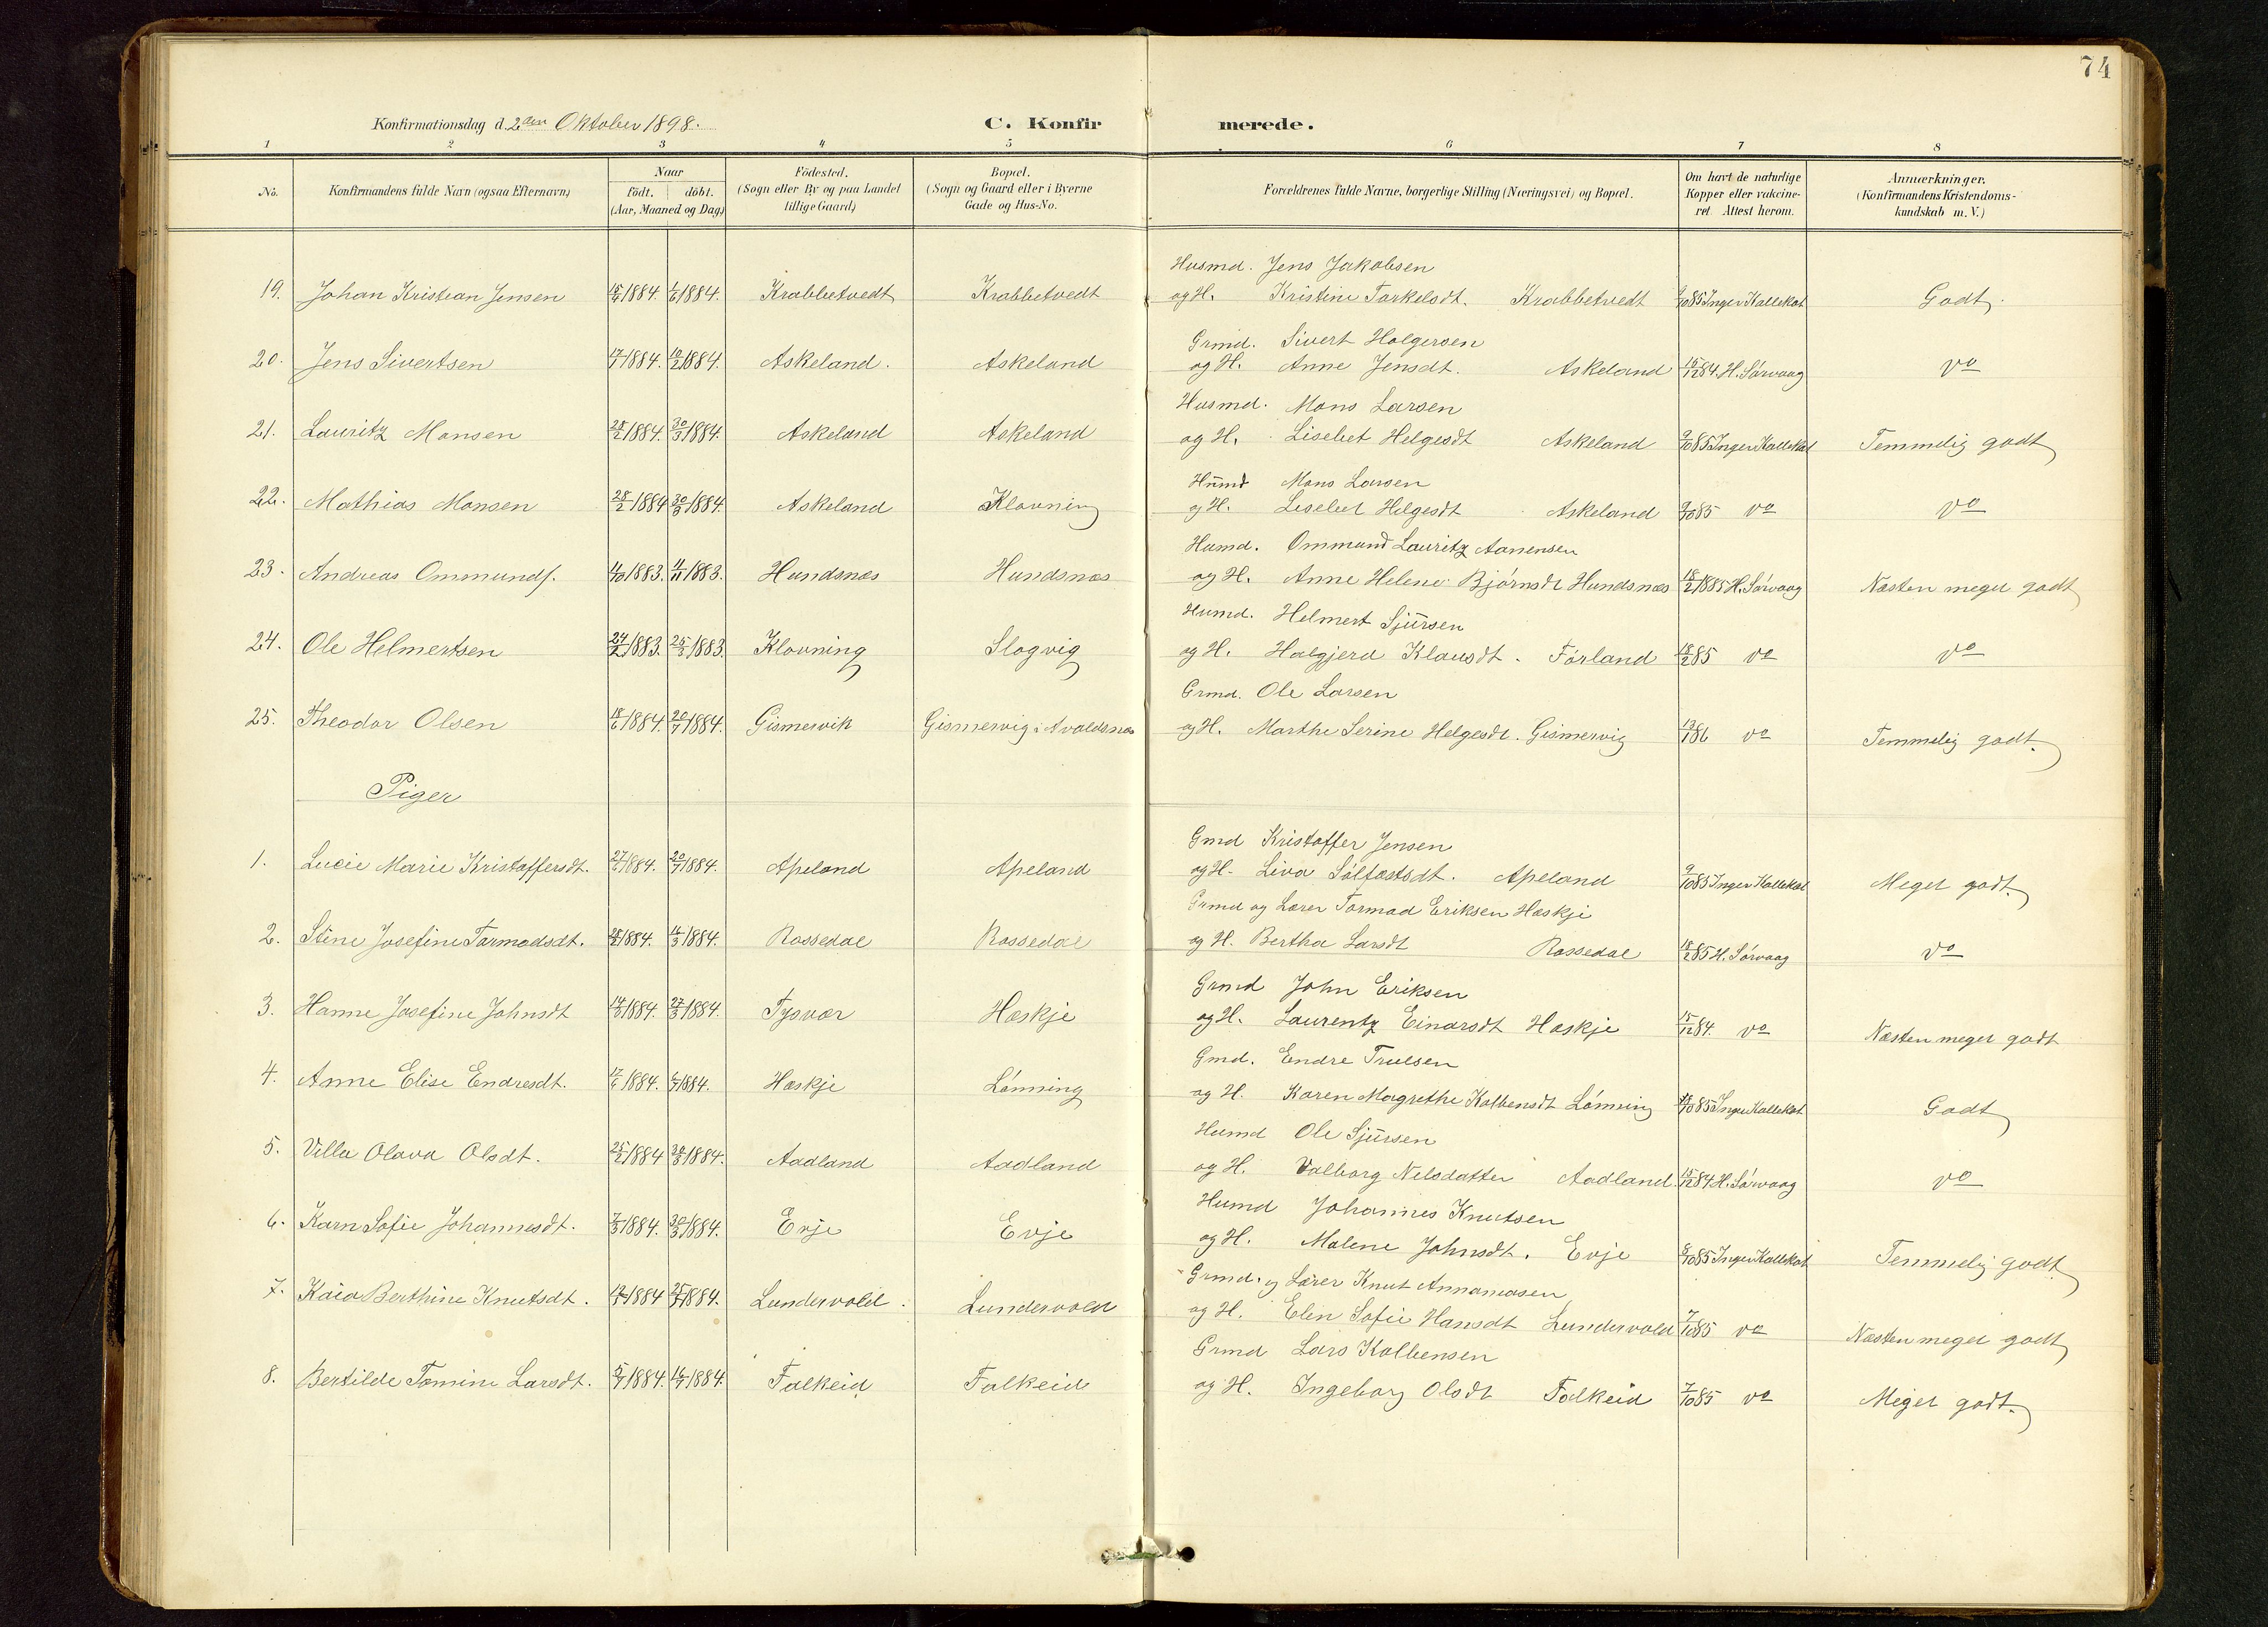 74
Konfirmationsdag d. 2den Oktober 1898.
C. Konfirmerede.
1 2 3 4 5 6 7 8
No.
Konfirmandens fulde Navn (ogsaa Efternavn)
Naar
födt. döbt.
(Aar, Maaned og Dag)
Födested.
(Sogn eller By og paa Landet
tillige Gaard)
Bopæl.
(Sogn og Gaard eller i Byerne
Gade og Hus-No.
Forældrenes fulde Navne, borgerlige Stilling (Næringsvei) og Bopæl.
Om havt de naturlige
Kopper eller vakcine-
ret. Attest herom.
Anmærkninger.
(Konfirmandens Kristendoms-
kundskab m. V.)
Husmd. Jens Jakobsen
19. Johan Kristian Jensen 15/5 1884. 1/6 1884. Krabbetvedt Krabbetvedt og H. Kristine Tarkelsdt. Krabbetvedt 9/10 85 Inger Kallekot Godt.
Grmd. Sivert Holgersen
20. Jens Sivertsen 17/1 1884. 10/2 1884. Askeland. Askeland og H. Anne Jensdt. Askeland 15/12 84. H. Sørvaag do
Husmd. Mons Larsen
21. Lauritz Monsen 28/2 1884. 30/3 1884. Askeland Askeland og H. Lisebet Helgesdt Askeland 9/10 85 Inger Kallekot Temmelig godt
Husmd Mons Larsen
22. Mathias Monsen 28/2 1884 30/3 1884. Askeland Klovning og H. Lisebet Helgesdt Askeland 9/10 85 do do
Husmd. Ommund Lauritz Aanensen
23. Andreas Ommunds. 4/10 1883. 4/11 1883. Hundsnæs Hundsnæs og H. Anne Helene Bjørnsdt Hundsnæs 18/2 1885 H. Sørvaag Næsten meget godt
Husmd. Helmert Sjursen
24. Ole Helmertsen 24/2 1883. 25/3 1883. Klovning Slogvig og H. Halgjerd Klausdt. Førland 18/2 85 do do
Grmd. Ole Larsen
25. Theodor Olsen 18/6 1884. 20/7 1884. Gismervik Gismervig i Avaldsnæs og H. Marthe Serine Helgesdt. Gismervig 13/1 86 do Temmelig godt.
Piger
Gmd Kristoffer Jensen
1. Lucie Marie Kristoffersdt. 27/6 1884. 20/7 1884. Apeland Apeland og H. Liva Sølfæstsdt. Apeland 9/10 85 Inger Kallekot Meget godt.
Grmd og Lærer Tormod Eriksen Hæskje
2. Stine Josefine Tormodsdt. 28/2 1884. 16/3 1884. Rossedal Rossedal og H. Bertha Larsdt Rossedal 18/2 85 H. Sørvaag do
Grmd John Eriksen
3. Hanne Josefine Johnsdt 1884. 27/3 1884. Tysvær Hæskje og H. Laurentz Einarsdt Hæskje 15/12 84. do Næsten meget godt
Gmd. Endre Trulsen
4. Anne Elise Endresdt. 17/6 1884. 6/7 1884. Hæskje Lønning og H. Karen Magrethe Kolbensdt Lønning 85 Inger Kallekot Godt
Husmd Ole Sjursen
5. Villa Olava Olsdt. 25/2 1884 30/3 1884. Aadland Aadland og H. Valborg Nilsdatter Aadland. 15/12 84 H. Sørvaag do
Husmd Johannes Knutsen
6. Karn Sofie Johannesdt. 7/3 1884. 30/3 1884. Evje Evje og H. Malene Johnsdt. Evje 8/10 85 Inger Kallekot Temmelig godt
Grmd. og Lærer Knut Annaniasen
7. Kaia Berthine Knutsdt. 1884 25/ 1884. Lundervold. Lundervold og H. Elen Sofie Hansdt Lundervold 7/10 85 do Næsten meget godt
Grmd Lars Kolbensen
8. Bertilde Tomine Larsdt. 1884. 16/ 1884. Falkeid Falkeid og H. Ingeborg Olsdt Falkeid 7/10 85 do Meget godt.